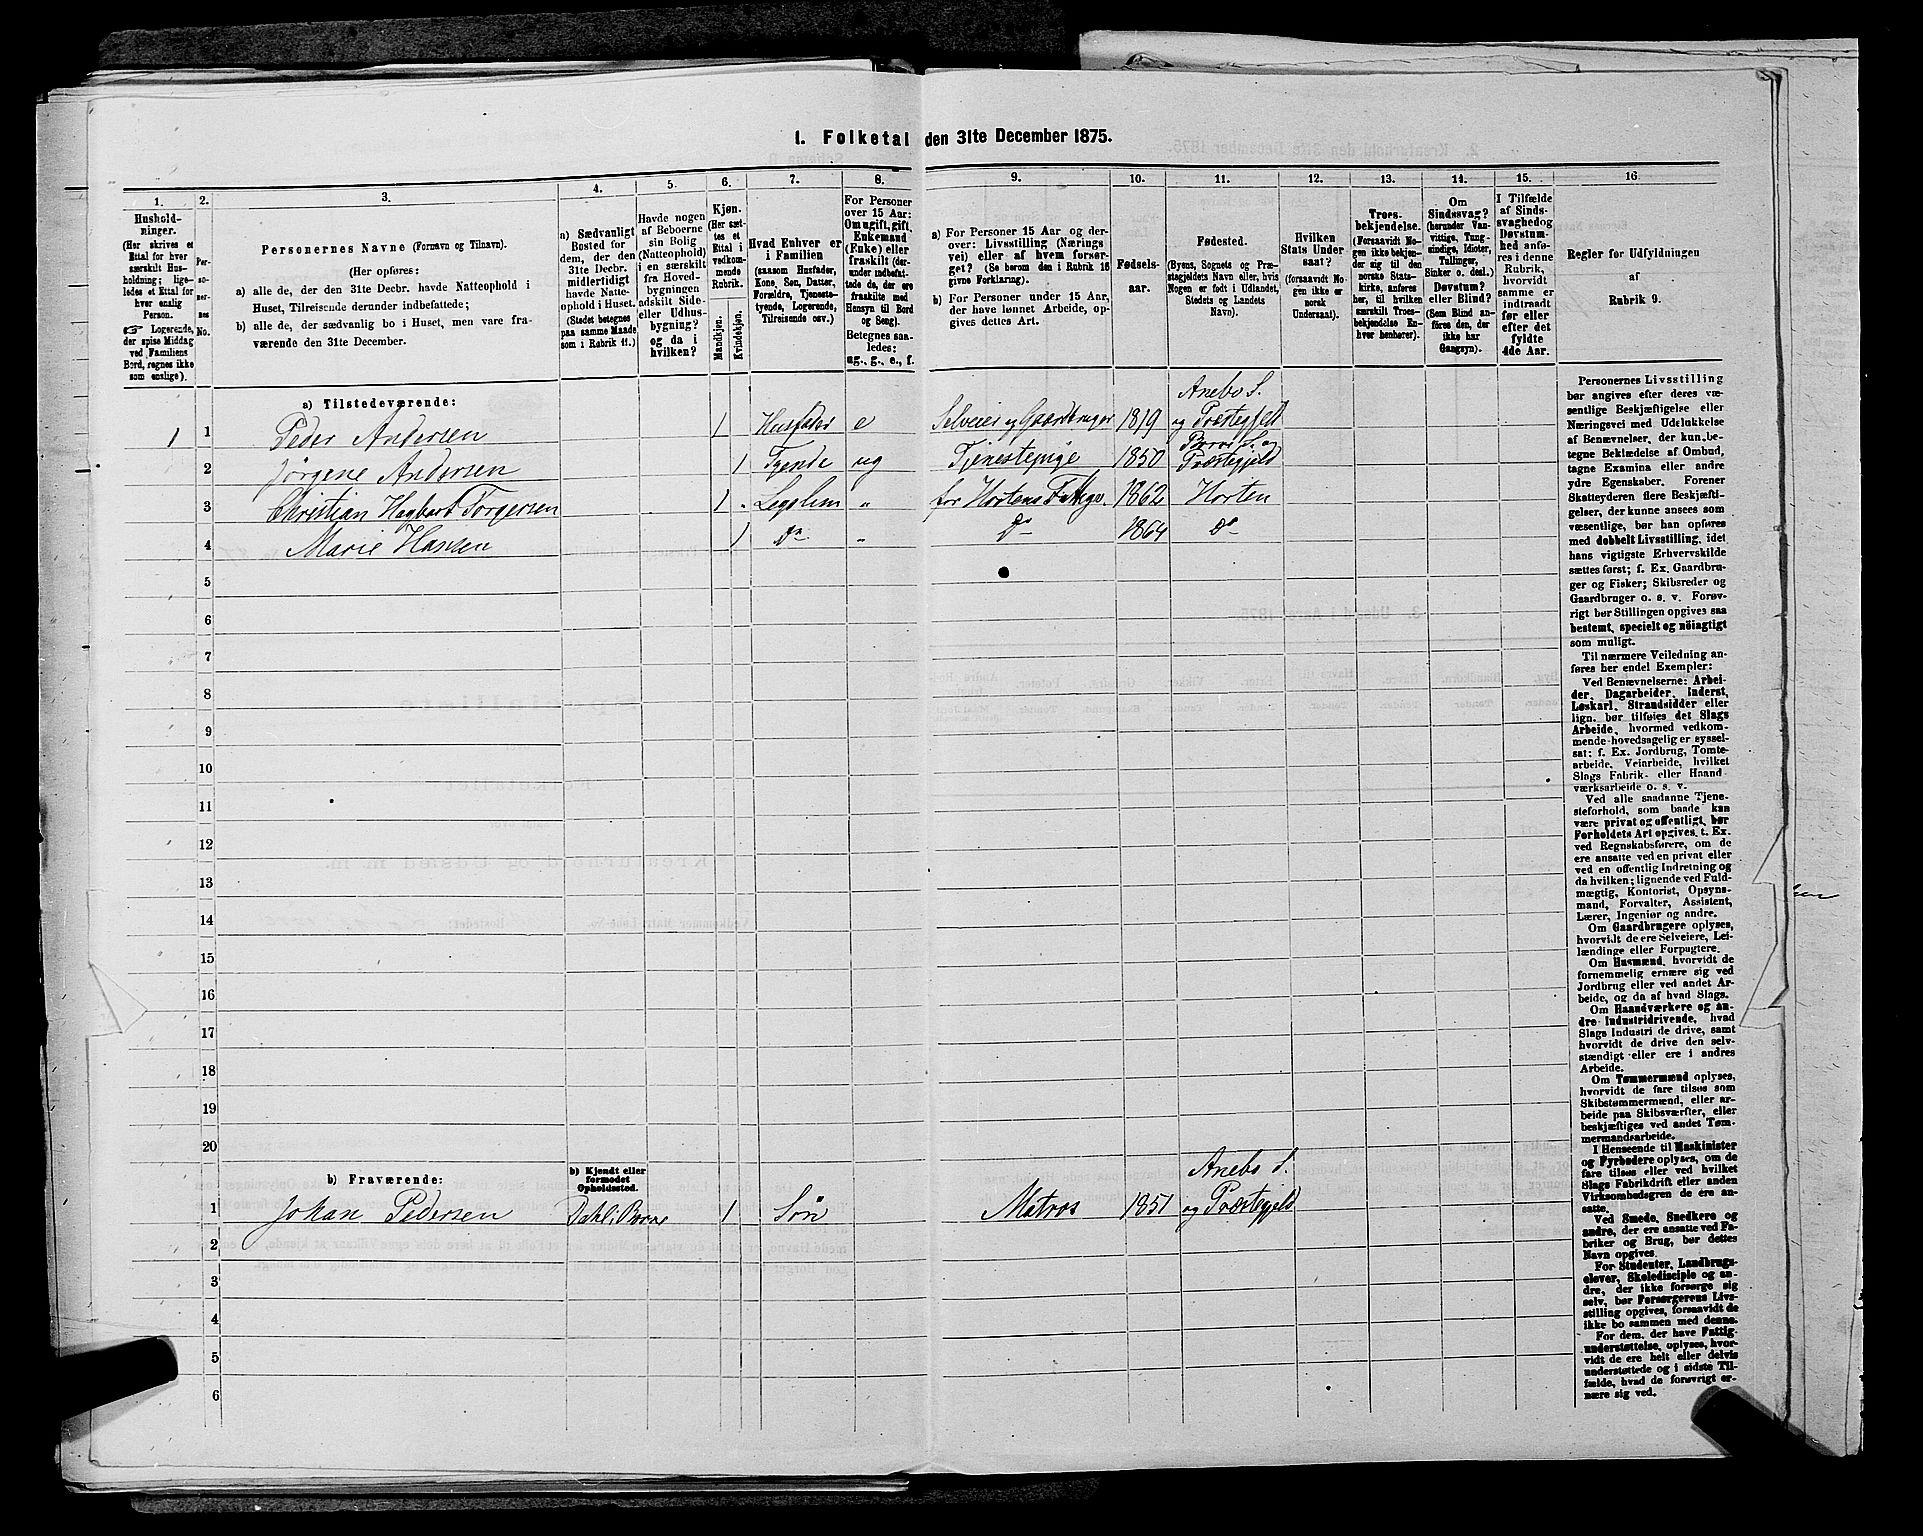 1. Folketal den 31te December 1875.
1. 2. 3. 4. 5. 6. 7. 8. 9. 10. 11. 12. 13. 14. 15. 16
Hushold-
ninger.
(Her skrives et
Ettal for hver
særskilt Hus-
holdning; lige-
ledes et Ettal for
hver enslig
Person.
☞ Logerende,
der spise Middag
ved Familiens
Bord, regnes ikke
som enslige).
Per-
so-
ner-
nes
No.
Personernes Navne (Fornavn og Tilnavn).
(Her opføres:
a) alle de, der den 31te Decbr. havde Natteophold i
Huset, Tilreisende derunder indbefattede;
b) alle de, der sædvanlig bo i Huset, men vare fra-
værende den 31te December.
a) Sædvanligt
Bosted for
dem, der den
31te Decbr.
midlertidigt
havde Natte-
ophold i Huset.
(Stedet betegnes
paa samme Maade
som i Rubrik 11.)
Havde nogen
af Beboerne
sin Bolig
(Natteophold)
i en særskilt
fra Hoved-
bygningen
adskilt Side-
eller Udhus-
bygning?
og da i
hvilken?
Kjøn.
(Her sæt-
tes et
Ettal i
vedkom-
mende
Rubrik.
Mandkjøn.
Kvindekjøn.
Hvad Enhver er
i Familien
(saasom Husfader,
Kone, Søn, Datter,
Forældre, Tjeneste-
tyende, Logerende,
Tilreisende osv.)
For Personer
over 15 Aar:
Om ugift, gift,
Enkemand
(Enke) eller
fraskilt (der-
under indbefat-
tede de, der ere
fraskilte med
Hensyn til Bord
og Seng).
Betegnes saa-
ledes:
ug., g., e., f.
a) For Personer 15 Aar og der-
over: Livsstilling (Nærings
vei) eller af hvem forsør-
get? (Se herom den i Rubrik 16
givne Forklaring).
b) For Personer under 15 Aar,
der have lønnet Arbeide, op-
gives dettes Art.
Fødsels-
aar.
Fødested.
(Byens, Sognets og Præ-
stegjeldets Navn eller, hvis
Nogen er født i Udlandet,
Stedets og Landets
Navn).
Hvilken
Stats Under
saat?
(forsaavidt No-
gen ikke er
norsk
Undersaat).
Troes-
bekjendelse.
(Forsaavidt No-
gen ikke bekjen-
der sig til den
norske Stats-
kirke, anføres
her, til hvilken
særskilt Troes-
bekjendelse En-
hver henhører).
Om
Sindssvag?
(herunder Van-
vittige, Tung-
sindige, Idioter,
Tullinger,
Sinker o. desl.)
Døvstum?
eller Blind?
(Som Blind an-
føres den, der
ikke har
Gangsyn).
I Tilfælde
af Sinds-
svaghed og
Døvstum-
hed anfø-
res i denne
Rubrik,
hvorvidt
samme er
indtraadt
før eller
efter det
fyldte
4de Aar.
Regler for Udfyldningen
af
Rubrik 9.
a) Tilstedeværende:
1 1 Peder Andersen 1 Husfader e Selveier og Gaardbruger 1819 Anebo S. og Præstegjeld
2 Jørgene Andersen 1 Tyende ug Tjenestepige 1850 Borre S. og Præstegjeld
3 Christian Hagbart Torgersen 1 Legslem " for Hortens 1862 Horten
4 Marie Hansen 1 Do " Do 1864 Do
5
6
7
8
9
10
11
12
13
14
15
16
17
18
19
20
b) Fraværende:
b) Kjendt eller
formodet
Opholdssted.
1 Johan Pedersen Dahl i Borre 1 Søn Matros 1851 Anebo S. og Præstegjeld
2
3
4
5
6
Personernes Livsstilling
bør angives efter deres væ-
sentlige Beskjæftigelse eller
Næringsvei med Udelukkelse
af Benævnelser, der kun be-
tegne Beklædelse af Ombud,
tagne Examina eller andre
ydre Egenskaber. Forener
Skatteyderen flere Beskjæfti-
gelser, der kunne ansees som
væsentlige, bør han opføres
med dobbelt Livsstilling, idet
hans vigtigste Erhvervskilde
sættes først; f. Ex. Gaardbru-
ger og Fisker; Skibsreder og
Gaardbruger o. s. v. Forøv-
rigt bør Stillingen opgives saa
bestemt, specielt og nøiagtigt
som muligt.
Til nærmere Veiledning an-
føres her endel Exempler:
Ved Benævnelserne: Arbei-
der, Dagarbeider, Inderst,
Løskarl, Strandsidder eller
lign. bør tilføies det Slags
Arbeide, hvormed vedkom-
mende hovedsagelig er syssel-
sat; f. Ex. Jordbrug, Tomte-
arbeide, Veiarbeide, hvilket
Slags Fabrik- eller Haand-
værksarbeide o. s. v.
Ved alle saadanne Tjene-
steforhold, som baade kan
være privat og offentligt, bør
Forholdets Art opgives, t. Ex.
ved Regnskabsførere, om de
ere ansatte ved en privat eller
ved en offentlig Indretning og
da hvilken; lignende ved Fuld-
mægtig, Kontorist, Opsyns-
mand, Forvalter, Assistent,
Lærer, Ingeniør og andre.
Om Gaardbrugere oplyses,
hvorvidt de ere Selveiere, Lei-
lændinge eller Forpagtere.
Om Husmænd, hvorvidt de
fornemmelig ernære sig ved
Jordbrug eller ved andet Ar-
beide, og da af hvad Slags.
Om Haandværkere og an-
dre Industridrivende, hvad
Slags Industri de drive, samt
hvorvidt de drive den selv-
stændigt eller ere i andres
Arbeide.
Om Tømmermænd oplyses,
hvorvidt de fare tilsøs som
Skibstømmermænd, eller ar-
beide paa Skibsværfter, eller
beskjæftiges ved andet Tøm-
mermandsarbeide.
I Henseende til Maskinister
og Fyrbødere oplyses, om de
fare tilsøs eller ved hvilket
Slags Fabrikdrift eller anden
Virksomhedsgren de ere an-
satte.
Ved Smede, Snedkere og
andre, der ere ansatte ved Fa-
briker og Brug, bør dettes
Navn opgives.
For Studenter, Landbrugs-
elever, Skoledisciple og an-
dre, der ikke forsørge sig
selv, bør Forsørgerens Livs-
stilling opgives, forsaavidt de
ikke bo sammen med denne.
For dem, der have Fattig-
understøttelse, oplyses, hvor-
vidt de ere helt eller delvis
understøttede og i sidste Til-
fælde, hvad de forøvrigt er-
nære sig ved.